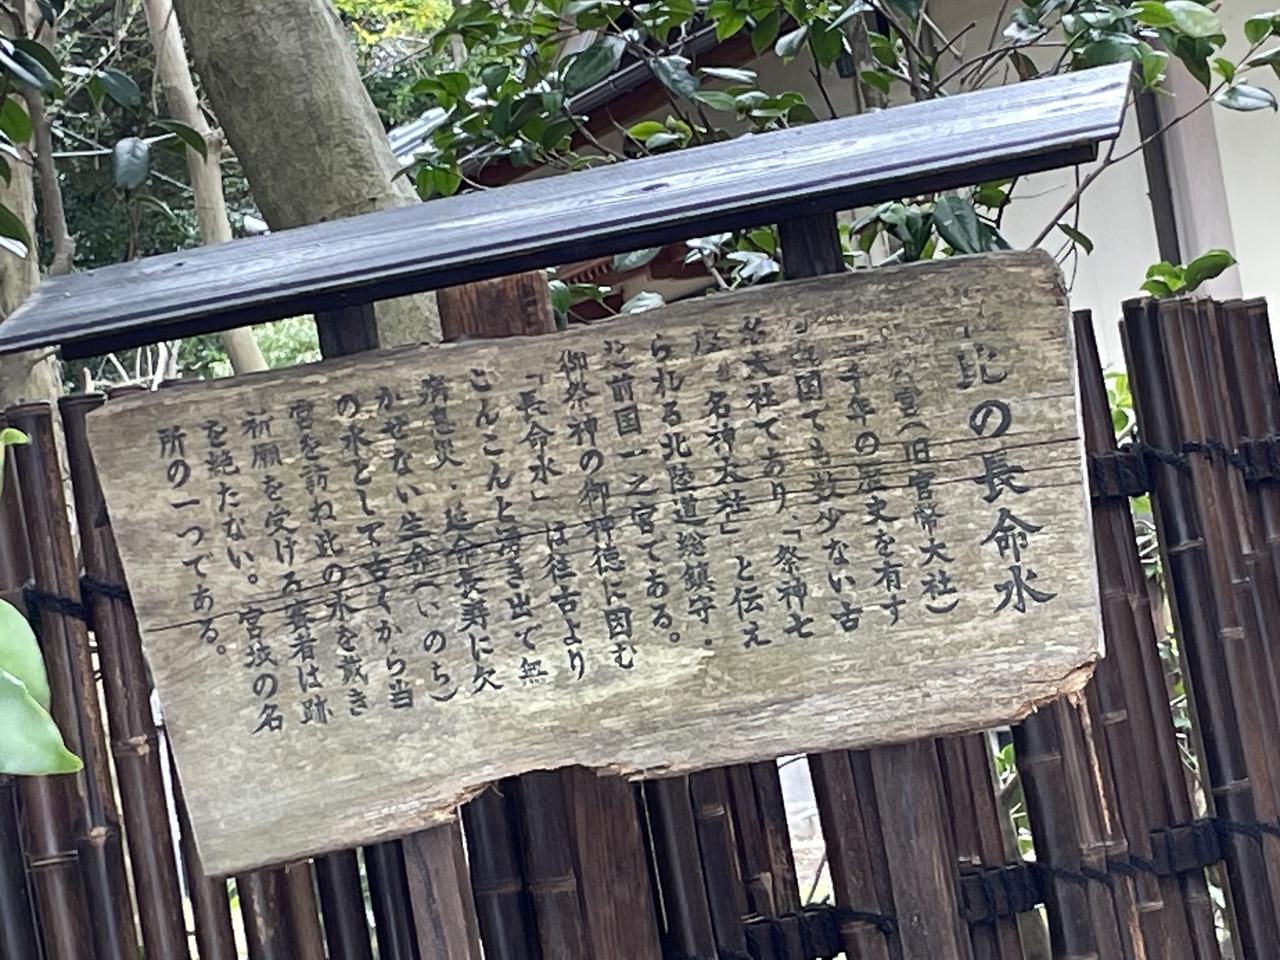 比の長命水
宮（旧官幣大社）
千年の歴史を有す
国でも数少ない古
大社であり、「祭神七
座 名神大社」と伝え
られる北陸道総鎮守・
越前国一之宮である。
御祭神の御神徳に因む
「長命水」は往古より
こんこんと湧き出で無
病息災・延命長寿に欠
かせない生命（いのち）
の水として古くから当
宮を訪ね此の水を戴き
祈願を受ける参者は跡
を絶たない。宮域の名
所の一つである。